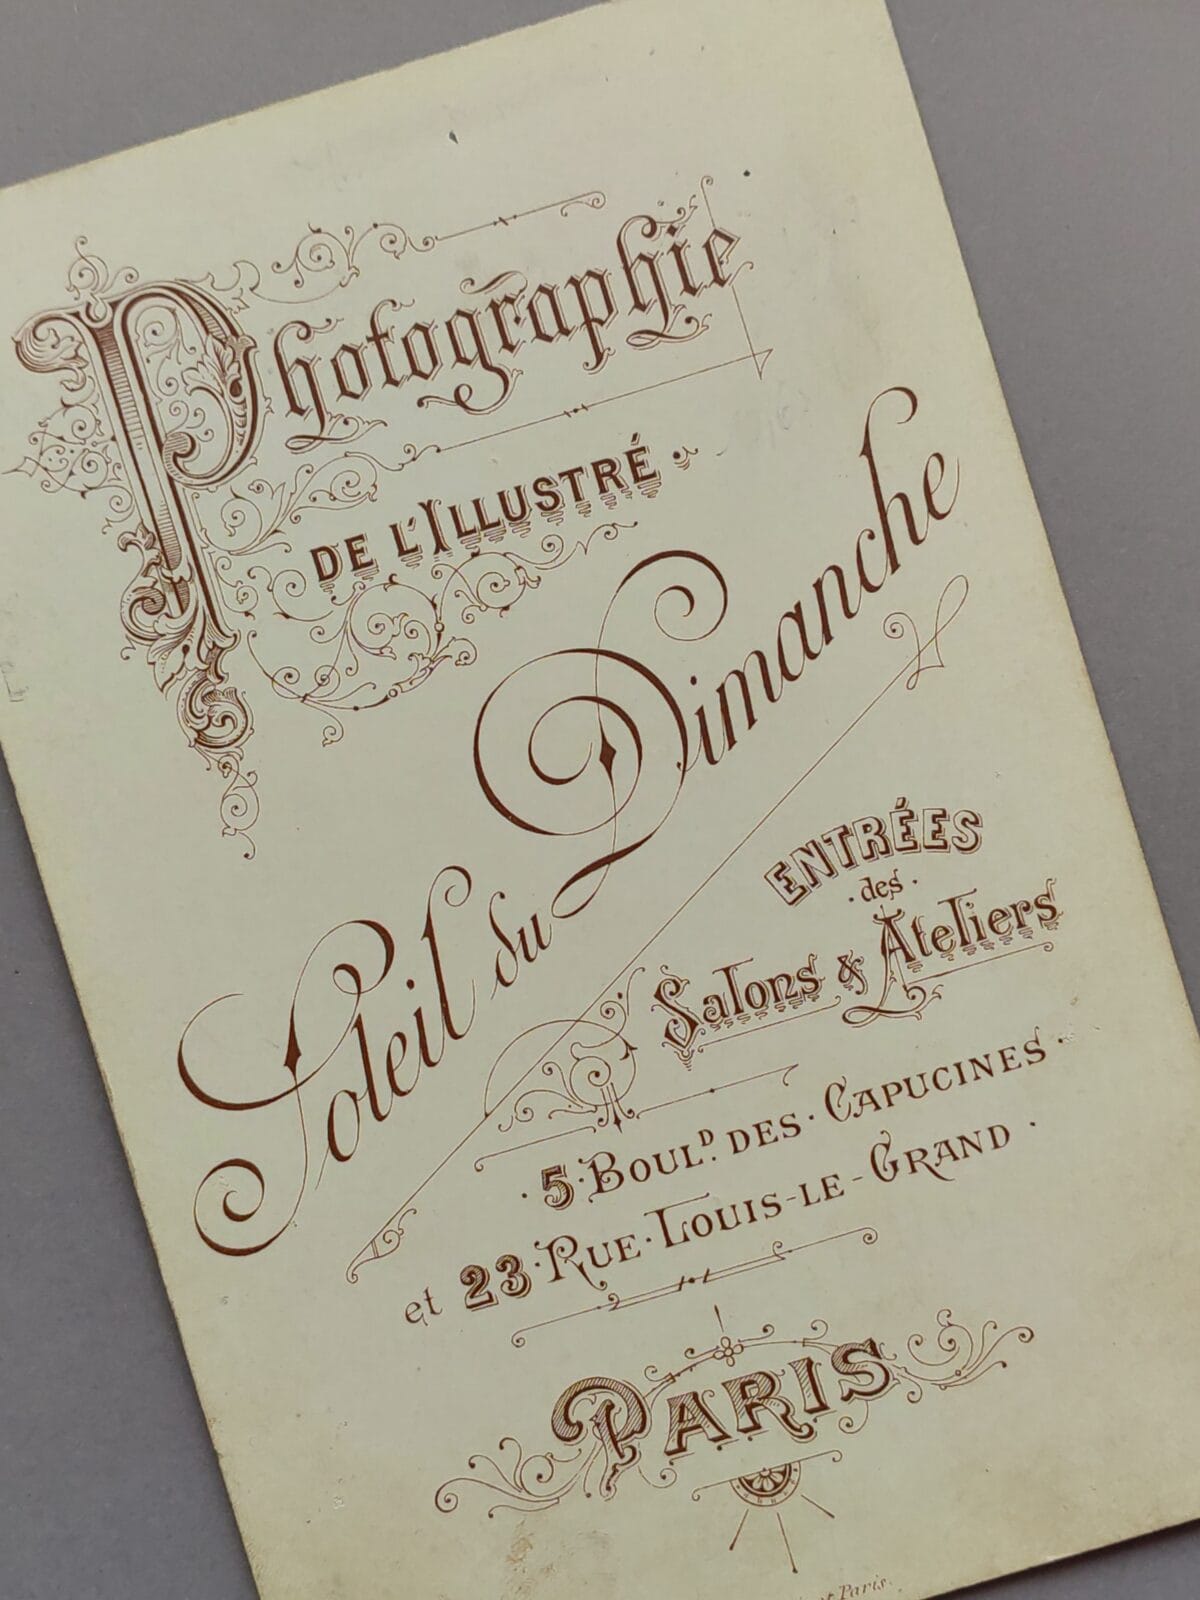 Photographie
DE L'ILLUSTRÉ
Soleil du Dimanche
ENTRÉES
des
Salons & Ateliers
5 BOUL.D DES CAPUCINES
et 23 RUE LOUIS-LE-GRAND
PARIS
Paris.